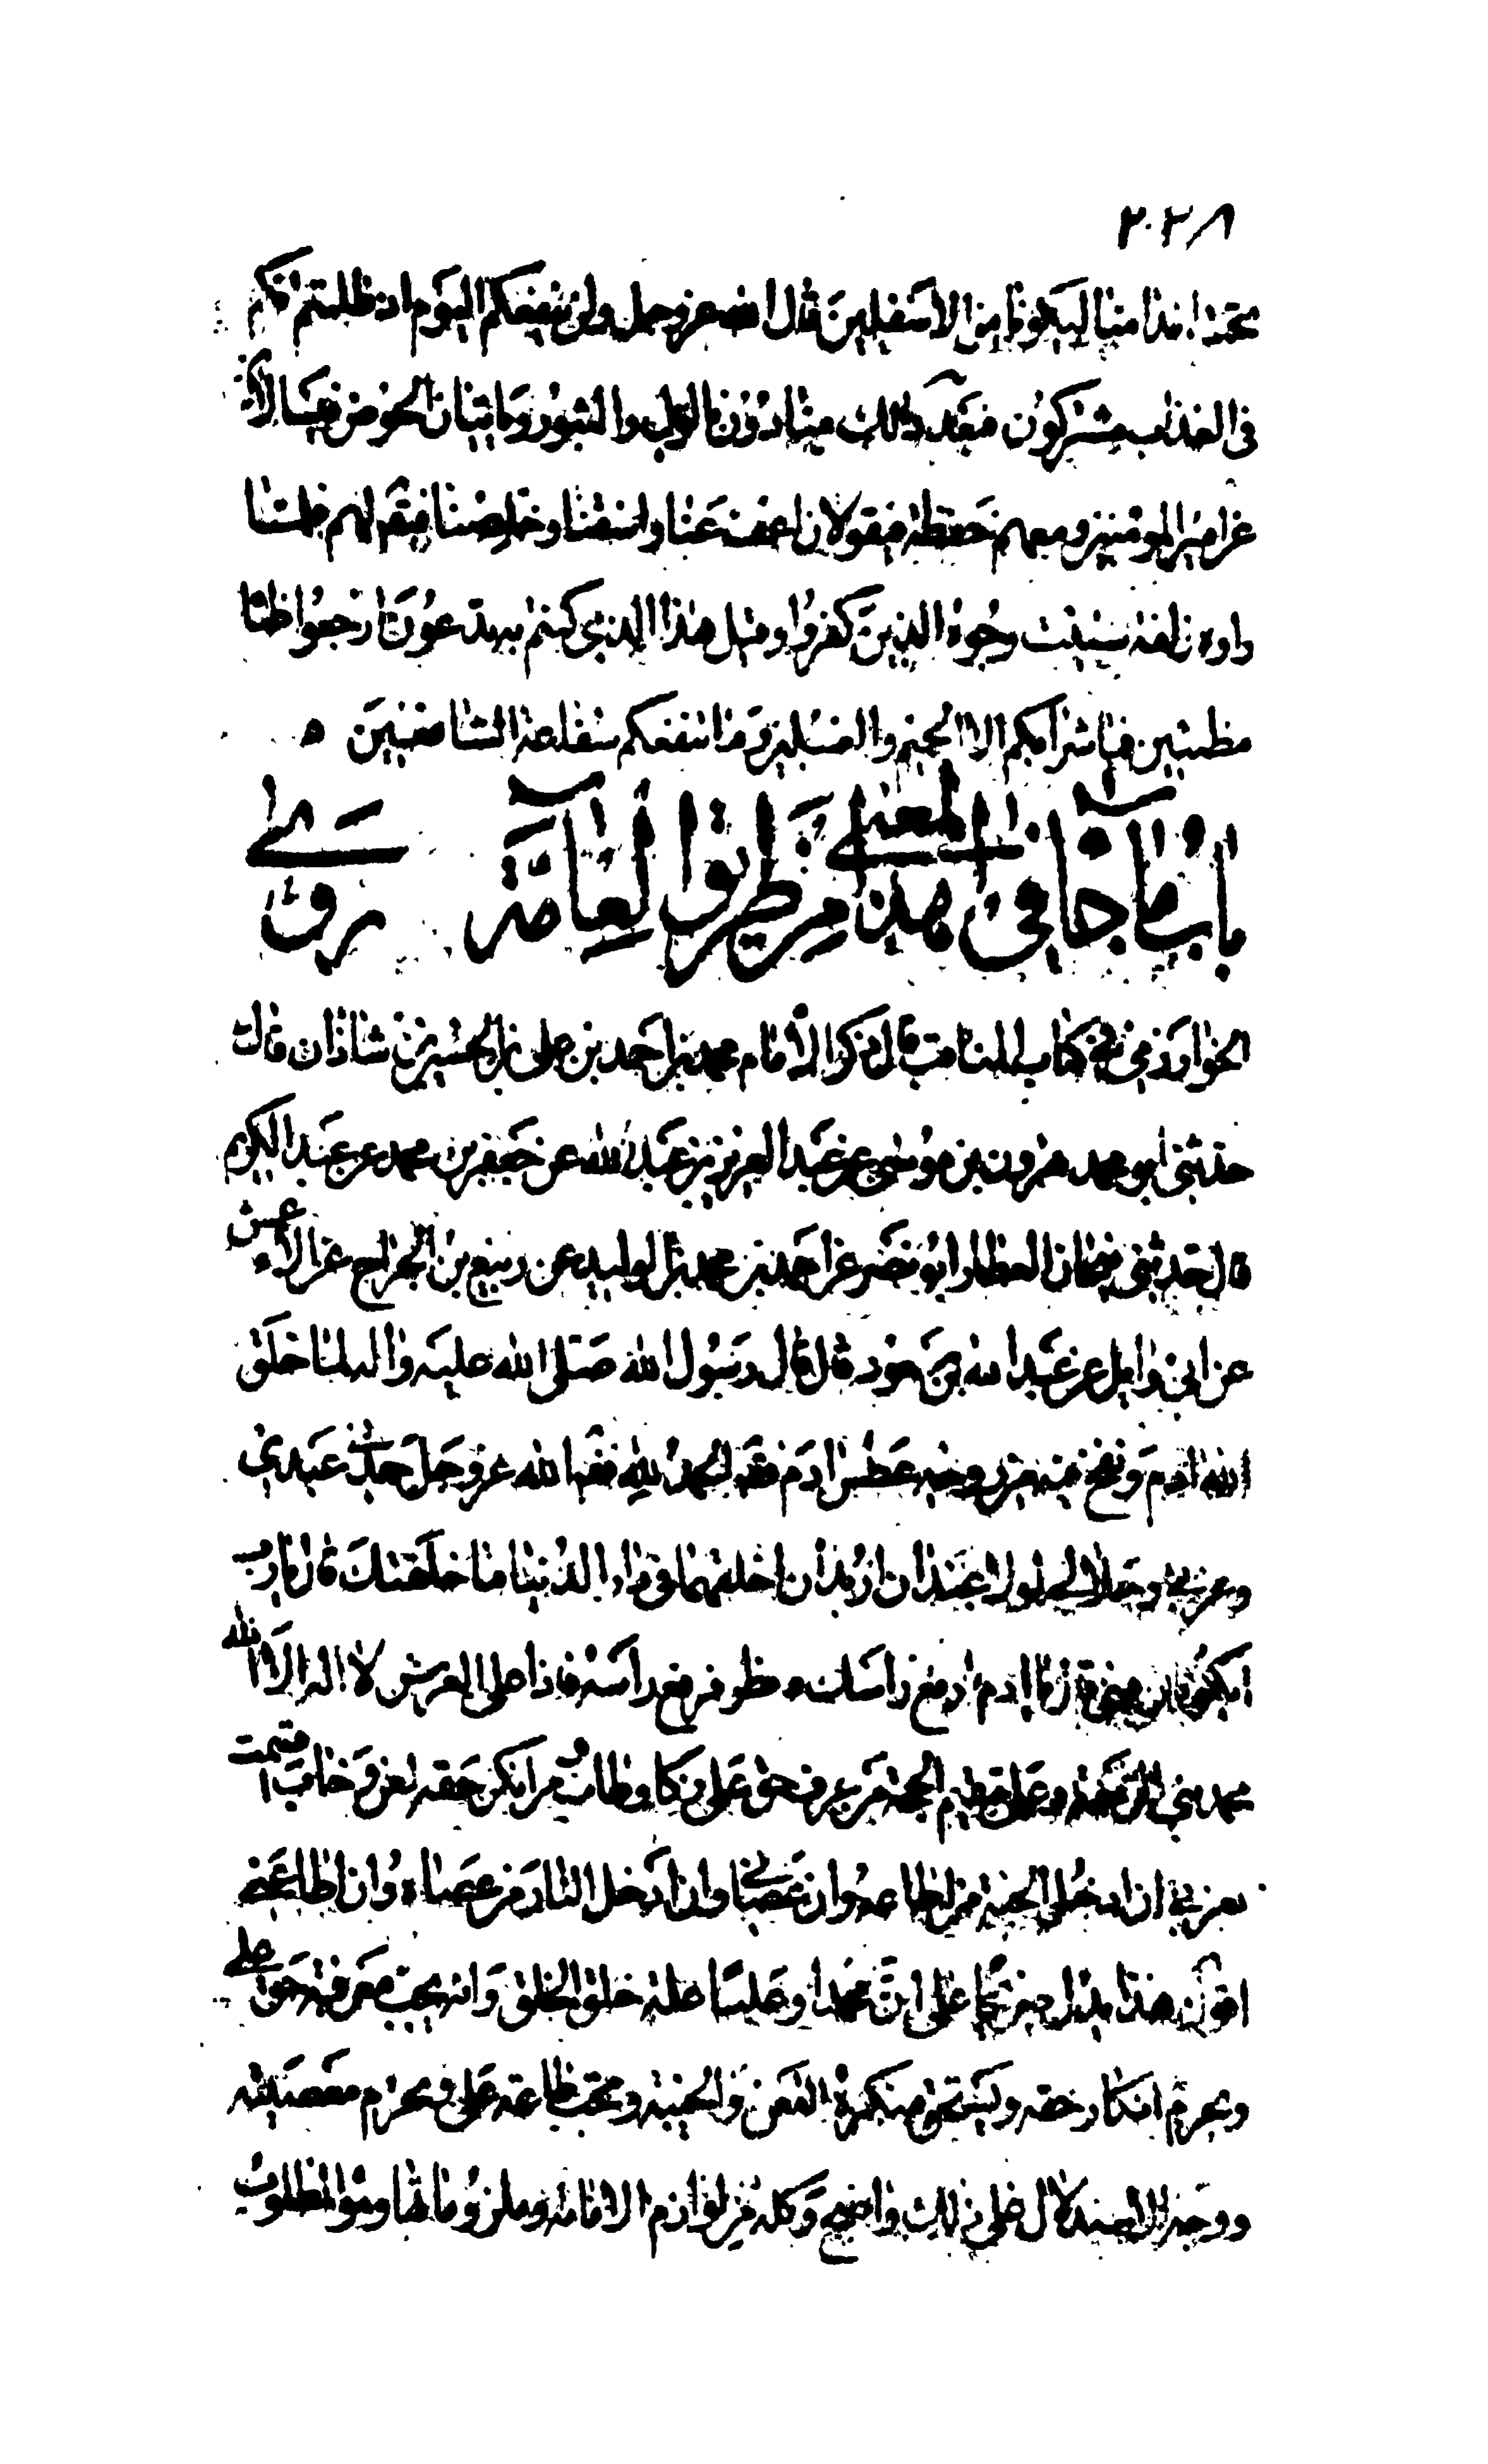 ٢٠٢٨
تحت اقدامنا ليكونا من الاسفلين قال الله عز وجل ولن ينفعكم اليوم اذ ظلمتم انكم
في العذاب مشتركون فعند ذلك يناديان بالويل والثبور وياتيان الحوض يسالان
عن امير المؤمنين ومعهم حفظة فيقولان اعف عنا واسقنا وخلصنا فيقال لهم فلما
راوه زلفة سيئت وجوه الذين كفروا وقيل هذا الذي كنتم به تدعون ارجعوا ظماء
مظمئين فما شرابكم الا الحميم والغسلين وما تنفعكم شفاعة الشافعين
باب ما جاء في هذا المعنى من طريق العامة روى
الخوارزمي في كتاب المناقب قال ذكر الامام محمد بن احمد بن علي بن الحسين بن شاذان قال
حدثني ابو محمد هرون بن موسى عن عبد العزيز بن عبد الله عن جعفر بن محمد عن عبد الكريم
قال حدثني العطار ابو نصر عن احمد بن محمد بن الوليد عن ربيع بن الجراح عن الاعمش
عن ابي وايل عن عبد الله بن مسعود قال قال رسول الله صلى الله عليه واله لما خلق
الله ادم ونفخ فيه من روحه عطس ادم فقال الحمد لله فقال الله عز وجل حمدني عبدي
وعزتي وجلالي لولا عبدان اريد ان اخلقهما في دار الدنيا ما خلقتك قال يا رب
ايكونان مني قال يا ادم ارفع راسك وانظر فرفع راسه فاذا على العرش لا اله الا الله
محمد نبي الرحمة وعلي مقيم الحجة من عرف حق علي زكا وطاب ومن انكر حقه لعن وخاب اقسمت
بعزتي ان ادخل الجنة من اطاعه وان عصاني وان ادخل النار من عصاه وان اطاعني
اقول هذا يدل على ان محمدا وعليا علة خلق الخلق وانه يجب معرفة حق علي
ويحرم انكار حقه ويستحق منكره اللعن والخيبة ويجب طاعة علي ويحرم معصيته
ووجه الاستدلال على ذلك واضح وكله من لوازم الامامة وملزوماتها وهو المطلوب